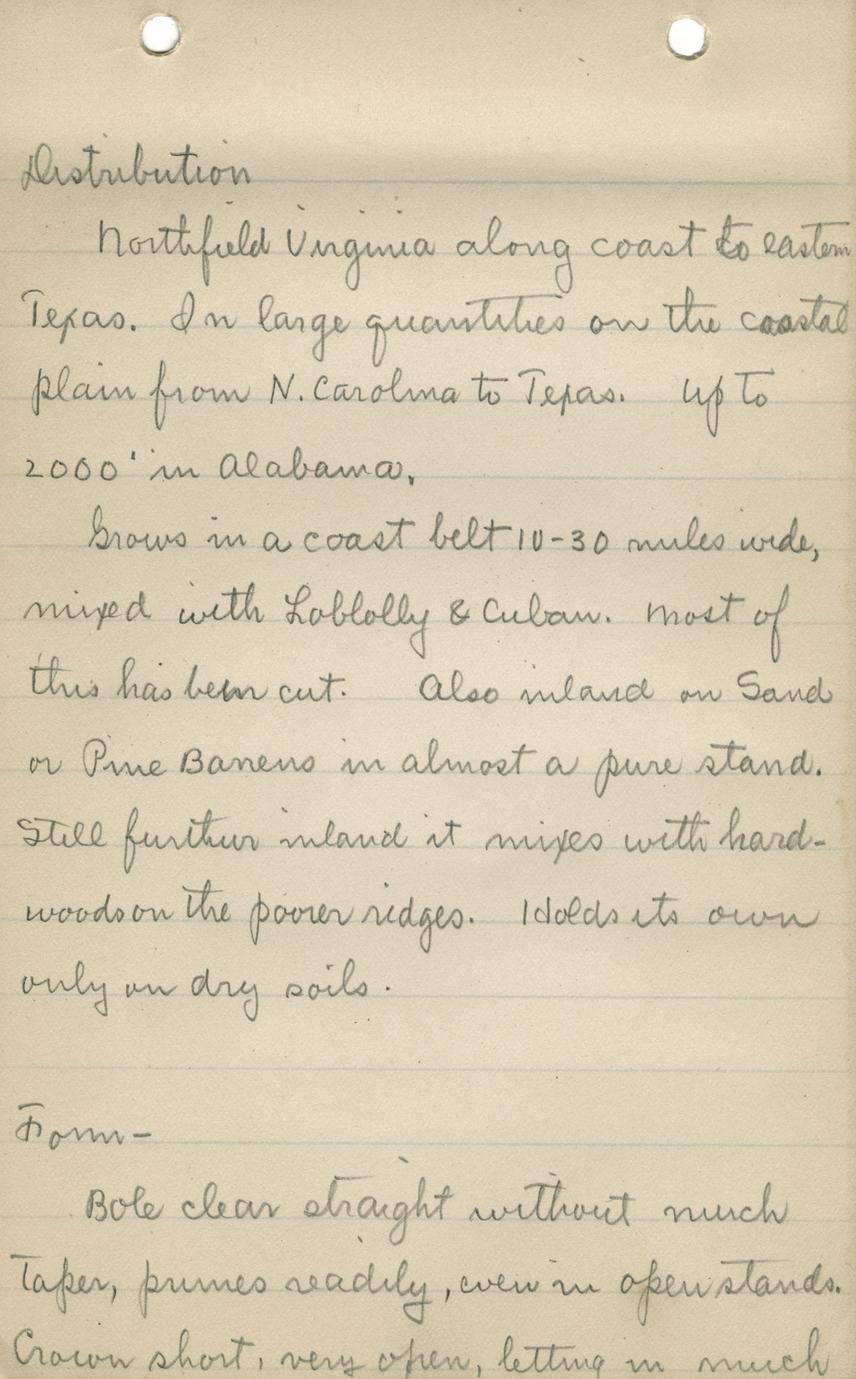 Distribution
Northfield Virginia along coast to eastern
Texas. In large quantities on the coastal
plain from N. Carolina to Texas. Up to
2000' in Alabama.
Grows in a coast belt 10-30 miles wide,
mixed with Loblolly & Cuban. Most of
this has been cut. Also inland on Sand
or Pine Barrens in almost a pure stand.
Still further inland it mixes with hard-
woods on the poorer ridges. Holds its own
only on dry soils.
Form-
Bole clear straight without much
Taper, prunes readily, even in open stands.
Crown short, very open, letting in much